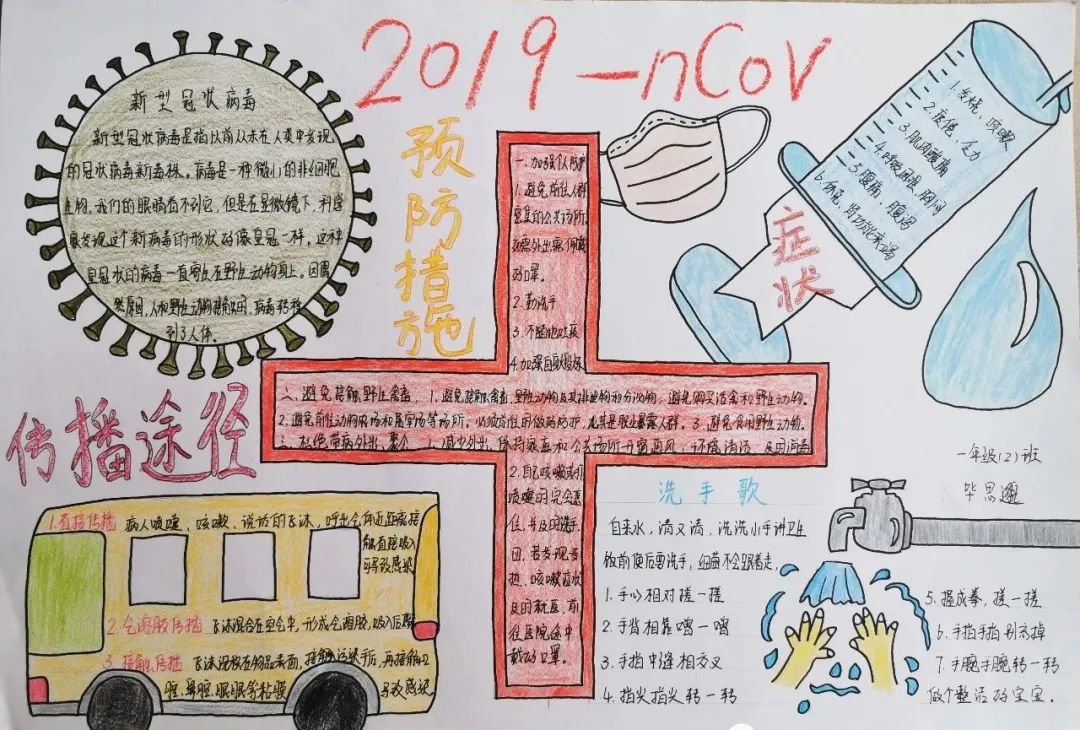 2019-nCoV
新型冠状病毒
新型冠状病毒是指以前从未在人类中发现
的冠状病毒新毒株。病毒是一种微小的非细胞
生物,我们的眼睛看不到它,但是在显微镜下,科学
家发现这个新病毒的形状好像皇冠一样。这种
皇冠状的病毒一直寄生在野生动物身上。因
然原因,人和野生动物接触时,病毒转移
到了人体。
预防措施
一、加强个人防护
1.避免前往人群
密集的公共场所
如需外出要佩戴
好口罩。
2.勤洗手
3.不随地吐痰
4.加强自身锻炼
二、避免接触野生禽畜 1.避免接触禽畜、野生动物及其排泄物和分泌物,避免购买活禽和野生动物。
2.避免前往动物农场和屠宰场等场所,必须前往时做好防护,尤其是职业暴露人群。3.避免食用野生动物。
三、杜绝带病外出、聚会 1.减少外出,保持家里和公共场所开窗通风,环境清洁,及时消毒
2.自己咳嗽或打
喷嚏时完全遮
住,并及时洗手。
四、若发现发
热、咳嗽症状
及时就医,前
往医院途中
戴好口罩。
症状
1.发烧、咳嗽
2.疲倦、乏力
3.肌肉酸痛
4.呼吸困难、胸闷
5.腹痛、腹泻
6.休克、肾功能衰竭
传播途径
1.直接传播 病人喷嚏、咳嗽、说话的飞沫,呼出气体近距离接
触直接吸入
可导致感染
2.气溶胶传播 飞沫混合在空气中,形成气溶胶,吸入后
3.接触传播 飞沫沉积在物品表面,接触污染手后,再接触口
腔、鼻腔、眼睛等粘膜 导致感染。
一年级(2)班
毕思邈
洗手歌
自来水,清又清,洗洗小手讲卫生
饭前便后要洗手,细菌不会跟着走。
1.手心相对搓一搓
2.手背相靠蹭一蹭
3.手指中缝相交叉
4.指尖指尖转一转
5.握成拳,搓一搓
6.手指手指别忘掉
7.手腕手腕转一转
做个整洁好宝宝。